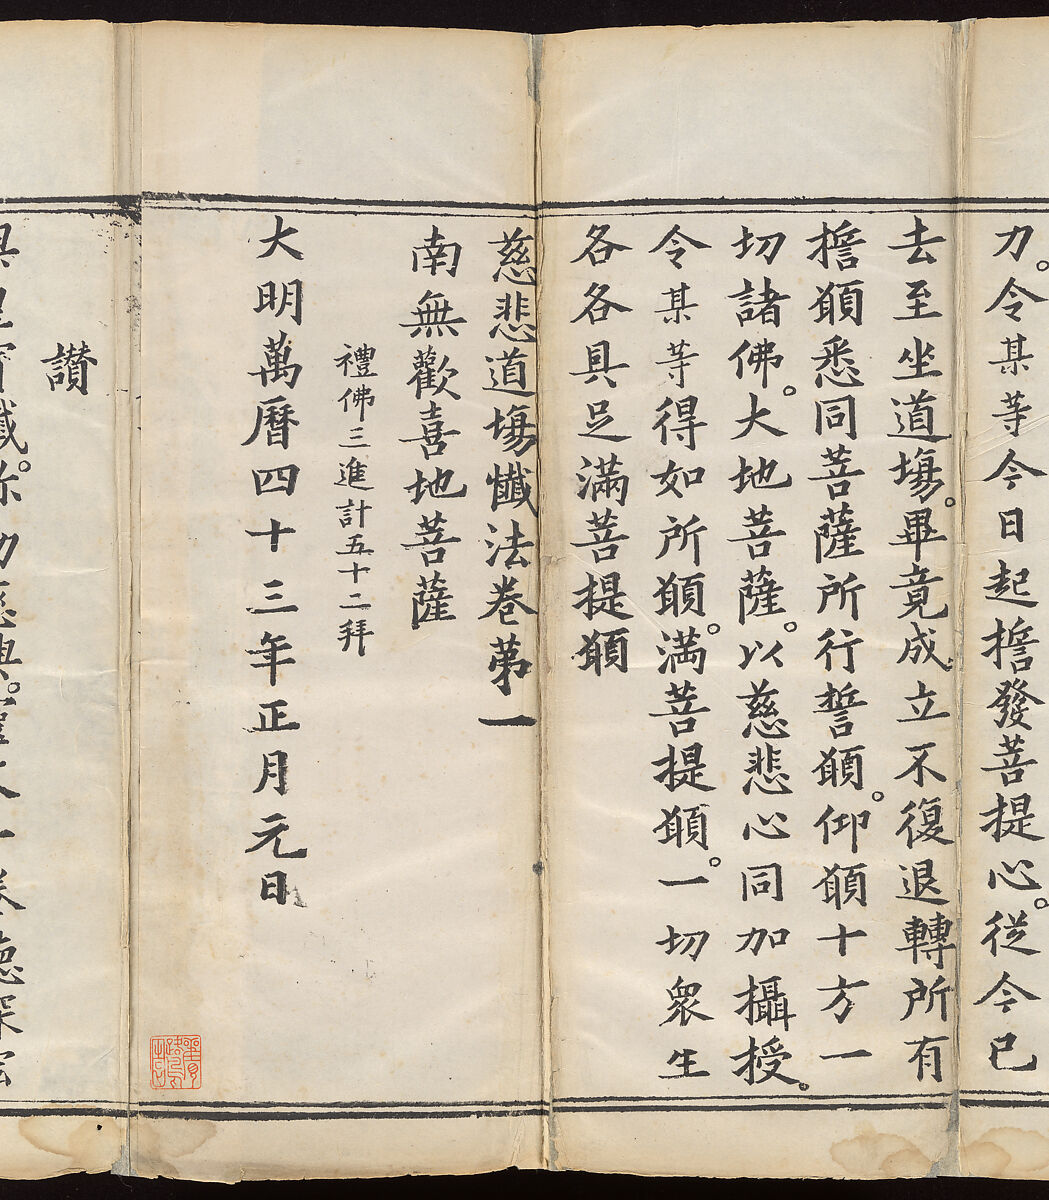 力。令某等今日起擔發菩提心。從今已
去至坐道塲。畢竟成立不復退轉所有
擔願悉同菩薩所行誓願。仰願十方一
切諸佛。大地菩薩。以慈悲心同加攝授。
令某等得如所願。滿菩提願。一切衆生
各各具足滿菩提願
慈悲道塲懺法卷第一
南無歡喜地菩薩
禮佛三進計五十二拜
大明萬曆四十三年正月元日
讃